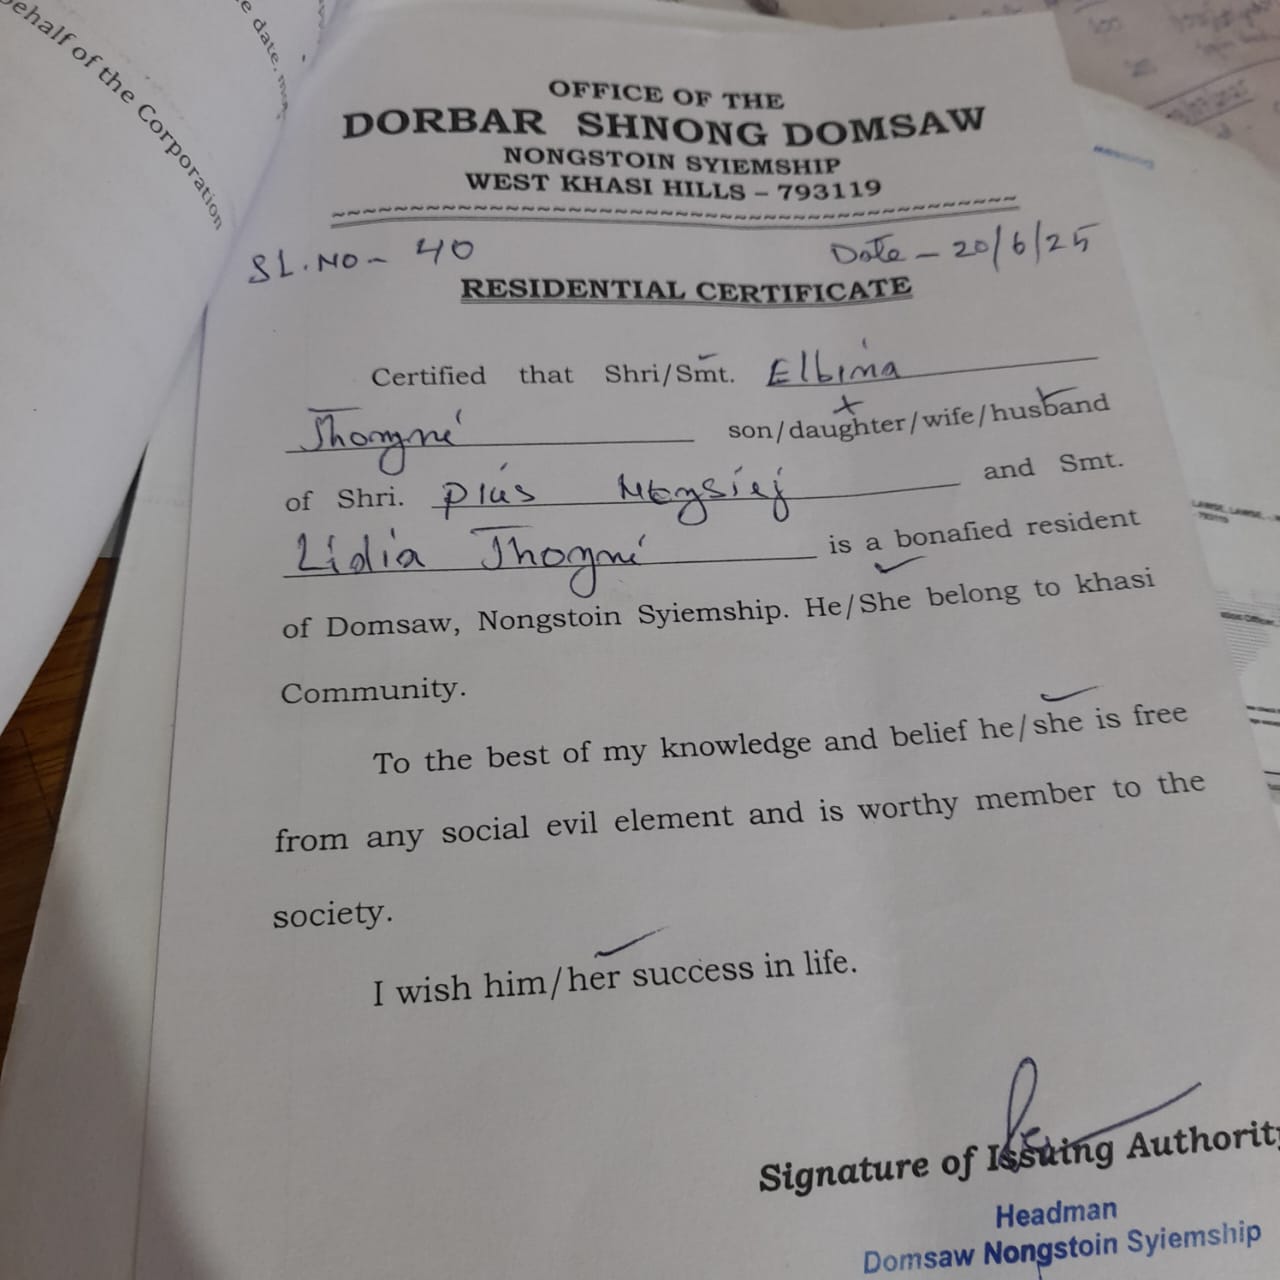 behalf of the Corporation
e date,
OFFICE OF THE
DORBAR SHNONG DOMSAW
NONGSTOIN SYIEMSHIP
WEST KHASI HILLS – 793119
SL.NO- 40
Date – 20/6/25
RESIDENTIAL CERTIFICATE
Certified that Shri/Smt. Elbina
son/daughter/wife/husband
of Shri. Pius and Smt.
Lidia is a bonafied resident
of Domsaw, Nongstoin Syiemship. He/She belong to khasi
Community.
To the best of my knowledge and belief he/she is free
from any social evil element and is worthy member to the
society.
I wish him/her success in life.
Signature of Issuing Authority
Headman
Domsaw Nongstoin Syiemship